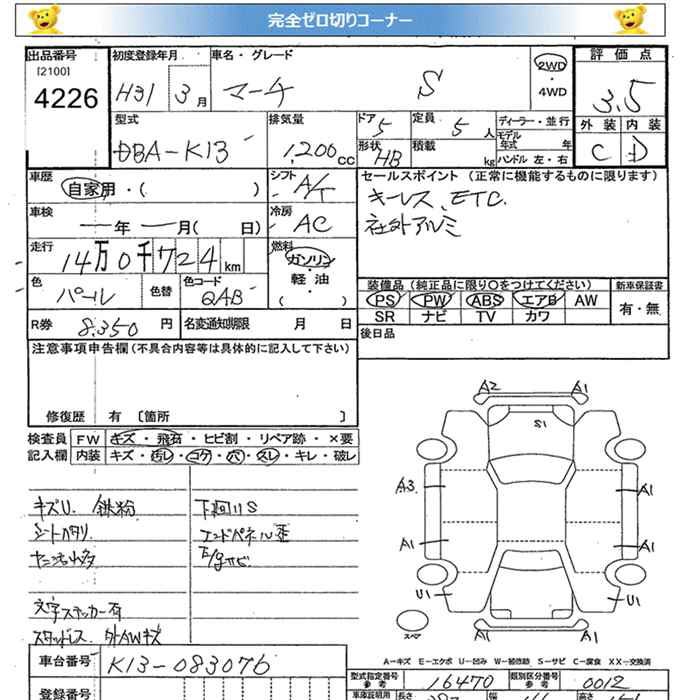 完全ゼロ切りコーナー
出品番号 初度登録年月 車名・グレード 評価点
[2100]
4226
H31 3月 マーチ S 2WD・4WD 3.5
型式 排気量 ドア 5 定員 5人 ディーラー・並行 外装 内装
DBA-K13 1,200cc 形状 HB 積載 kg モデル年式 年 C D
ハンドル 左・右
車歴 シフト セールスポイント (正常に機能するものに限ります)
自家用・( ) A/T キーレス、ETC.
車検 冷房 社外アルミ
ー年 ー月( 日) AC
走行 燃料
14万0千724km ガソリン・軽油・( )
色 色替 色コード 装備品(純正品に限り○をつけてください) 新車保証書
パール QAB PS PW ABS エアB AW 有・無
SR ナビ TV カワ
R券 8,350円 名変通知期限 月 日 後日品
注意事項申告欄(不具合内容等は具体的に記入して下さい)
修復歴 有 〔箇所 〕
検査員 FW キズ・飛石・ヒビ割・リペア跡・×要
記入欄 内装 キズ・汚レ・コゲ・穴・スレ・キレ・破レ
キズU. 鉄粉 下廻りS
シートヘタリ エンドパネル歪
文字ステッカー有
スタッドレス. 外AWキズ
A2 A1
S1
A3 A1
A1 A1
U1 U1
スペア
A-キズ E-エクボ U-凹み W-補修跡 S-サビ C-腐食 XX-交換済
車台番号 K13-083076
型式指定番号 参考 16470 類別区分番号 参考 0012
登録番号 車庫証明用 長さ 幅 高さ